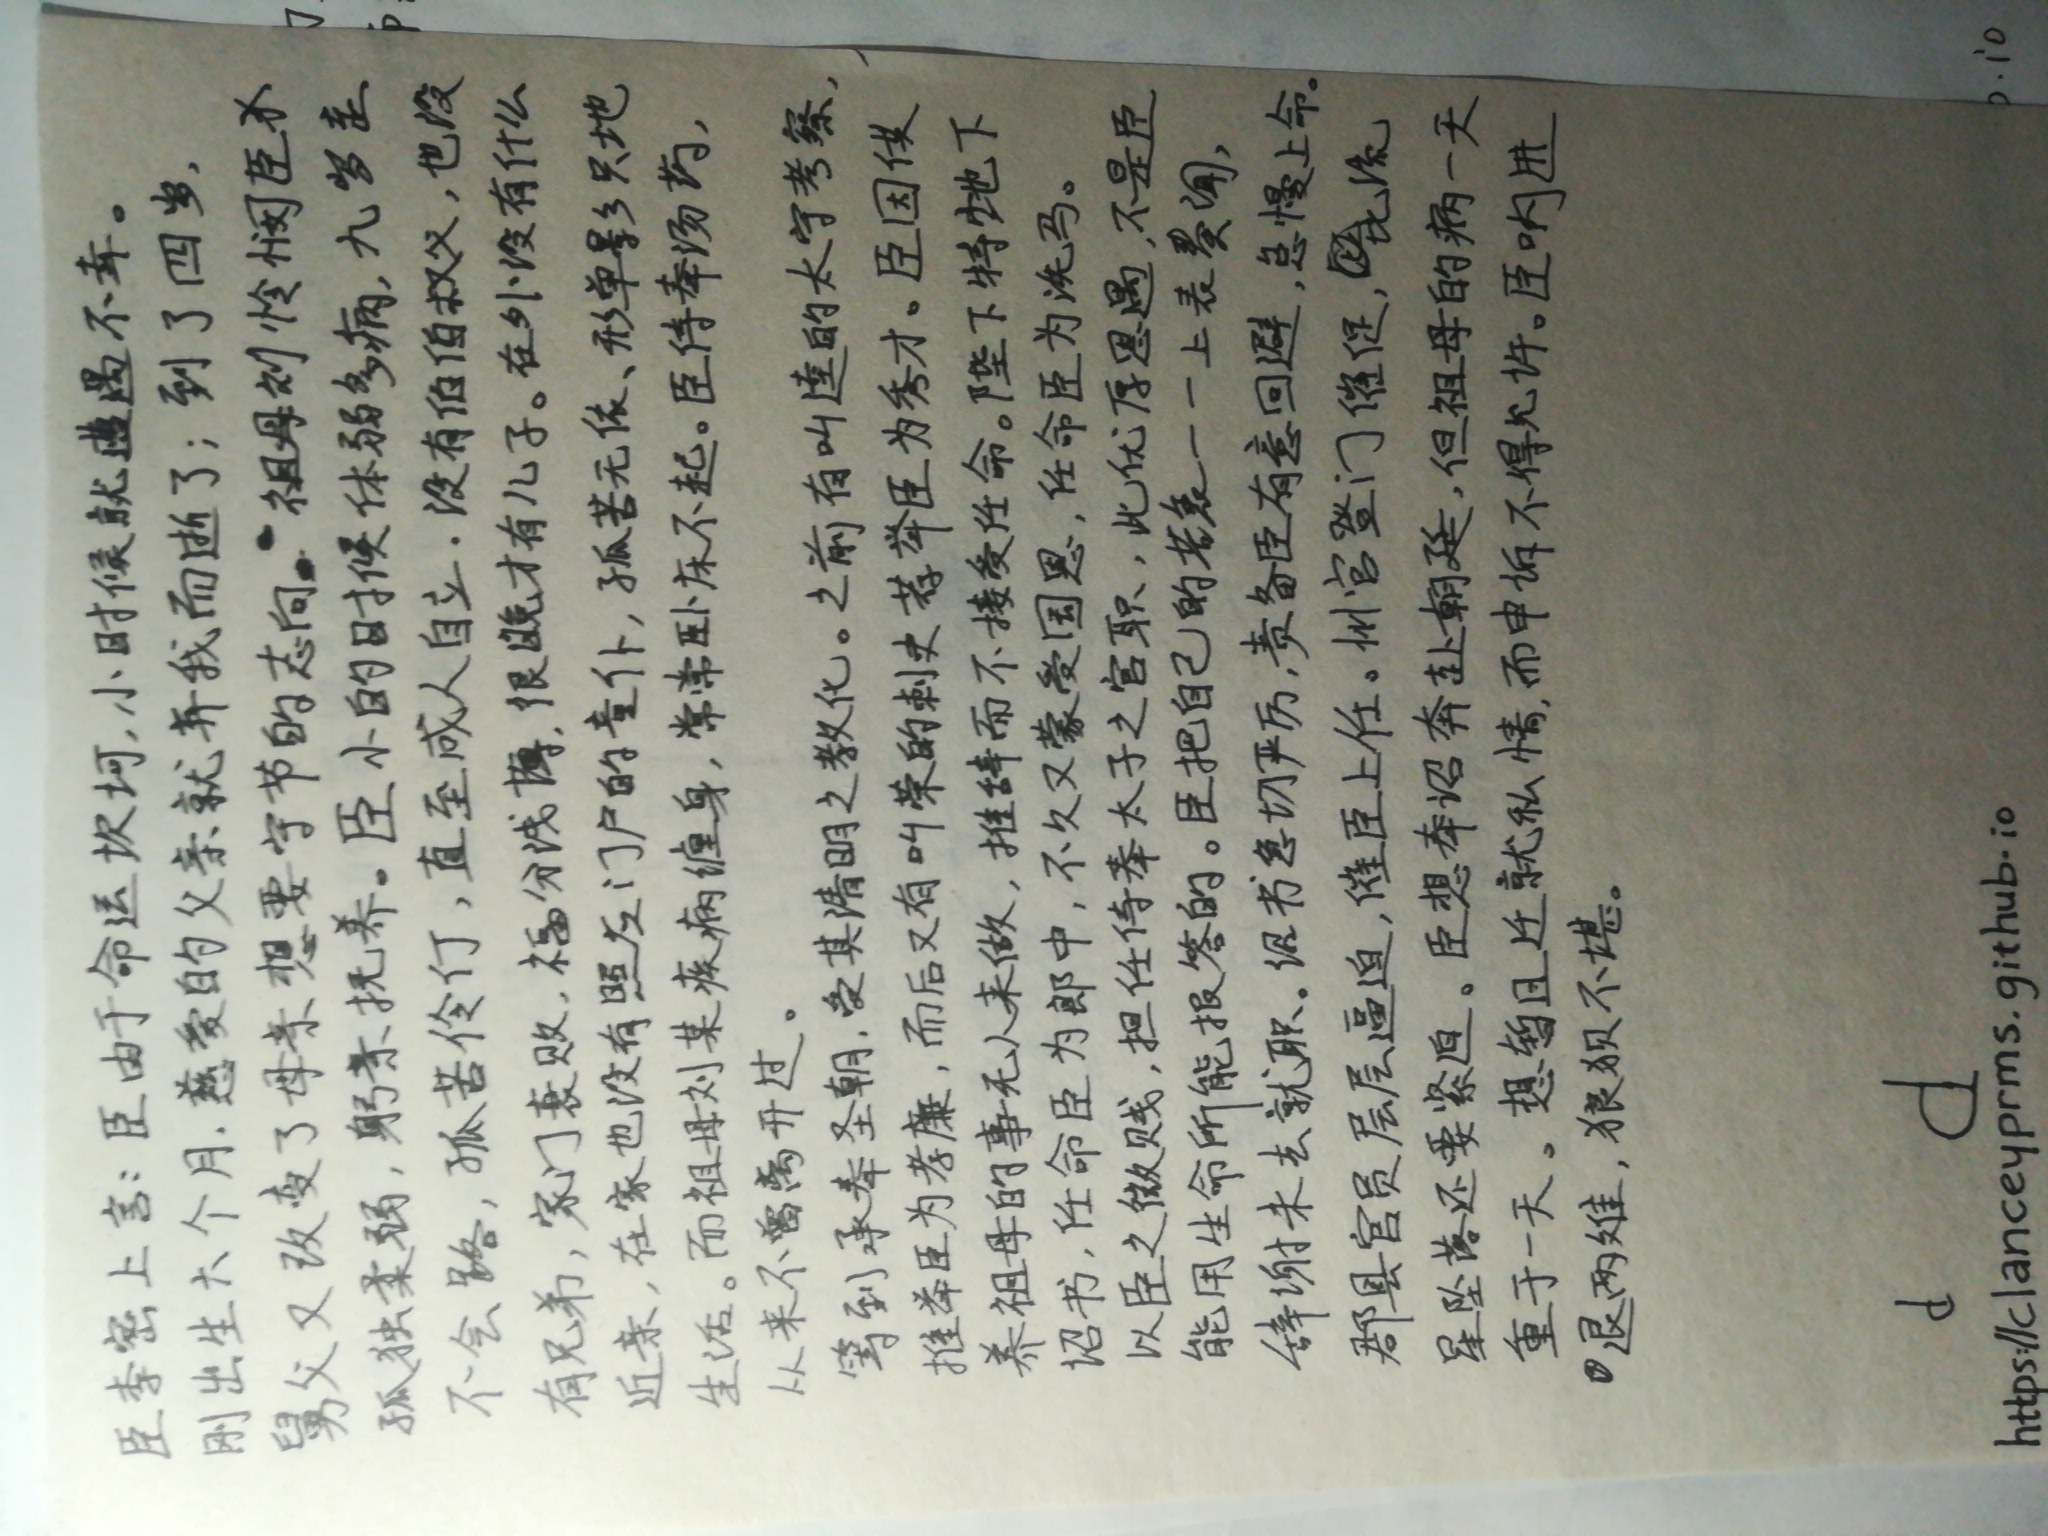 臣李密上言：臣由于命运坎坷，小时候就遭遇不幸。
刚出生六个月，慈爱的父亲就弃我而逝了；到了四岁，
舅父又改变了母亲想要守节的志向。祖母刘怜悯臣
孤独柔弱，躬亲抚养。臣小的时候体弱多病，九岁走
不会路，孤苦伶仃，直至成人自立。没有伯伯叔父，也没
有兄弟，家门衰败，福分浅薄，很晚才有儿子。在外没有什么
近亲，在家也没有照应门户的童仆，孤苦无依、形单影只地
生活。而祖母刘某疾病缠身，常常卧床不起。臣侍奉汤药，
从来不曾离开过。
等到承奉圣朝，受其清明之教化。之前有叫逵的太守考察，
推举臣为孝廉，而后又有叫荣的刺史荐举臣为秀才。臣因供
养祖母的事无人来做，推辞而不接受任命。陛下特地下
诏书，任命臣为郎中，不久又蒙受国恩，任命臣为洗马。
以臣之微贱，担任侍奉太子之官职，此优厚恩遇，不是臣
能用生命所能报答的。臣把自己的苦衷一一上表闻，
辞谢未去就职。诏书急切严厉，责备臣有意回避，怠慢上命。
郡县官员层层逼迫，催臣上任。州官登门催促，比流
星坠落还要紧迫。臣想奉诏奔赴朝廷，但祖母的病一天
重于一天。想暂且迁就私情，而申诉不得允许。臣进
退两难，狼狈不堪。
d d
https://clanceyprms.github.io
o.io